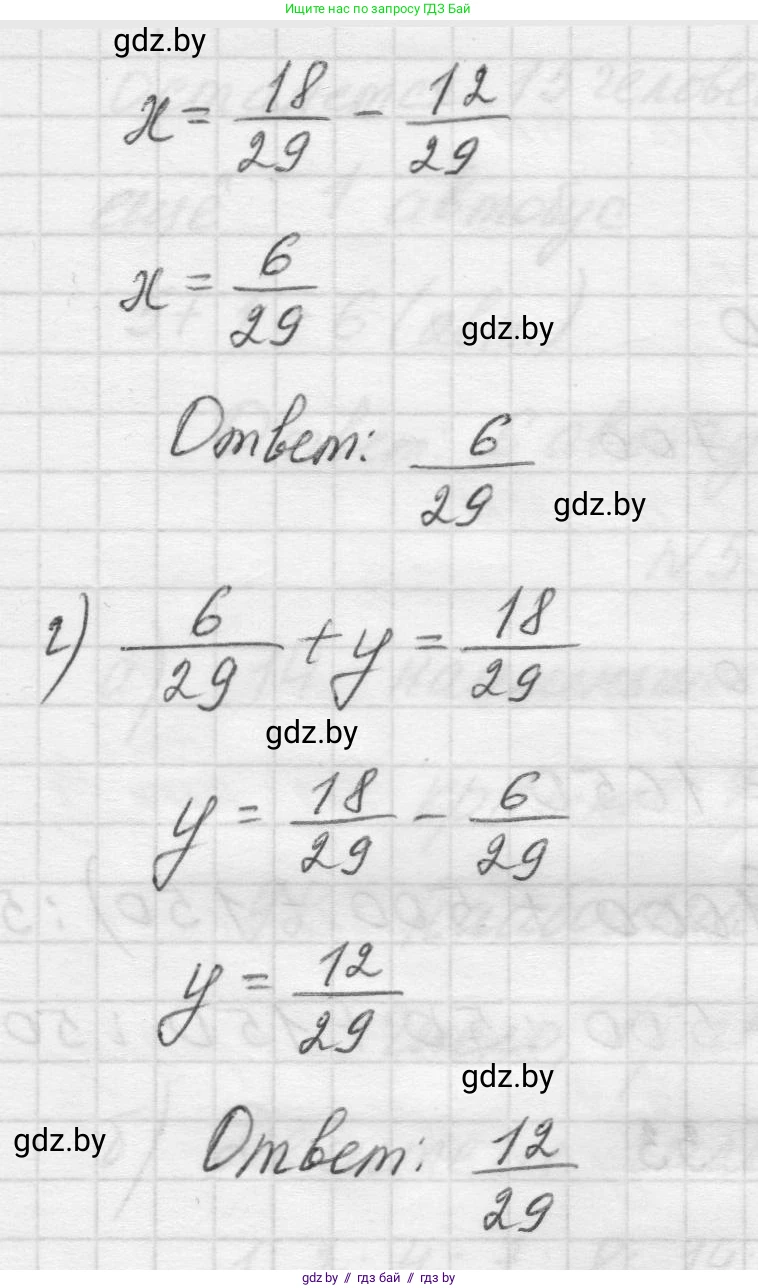 Ищите нас по запросу ГДЗ Бай
gdz.by
x = 18/29 - 12/29
x = 6/29
gdz.by
Ответ: 6/29
gdz.by
г) 6/29 + y = 18/29
gdz.by
y = 18/29 - 6/29
y = 12/29
gdz.by
gdz.by
Ответ: 12/29
gdz.by // гдз бай // gdz.by